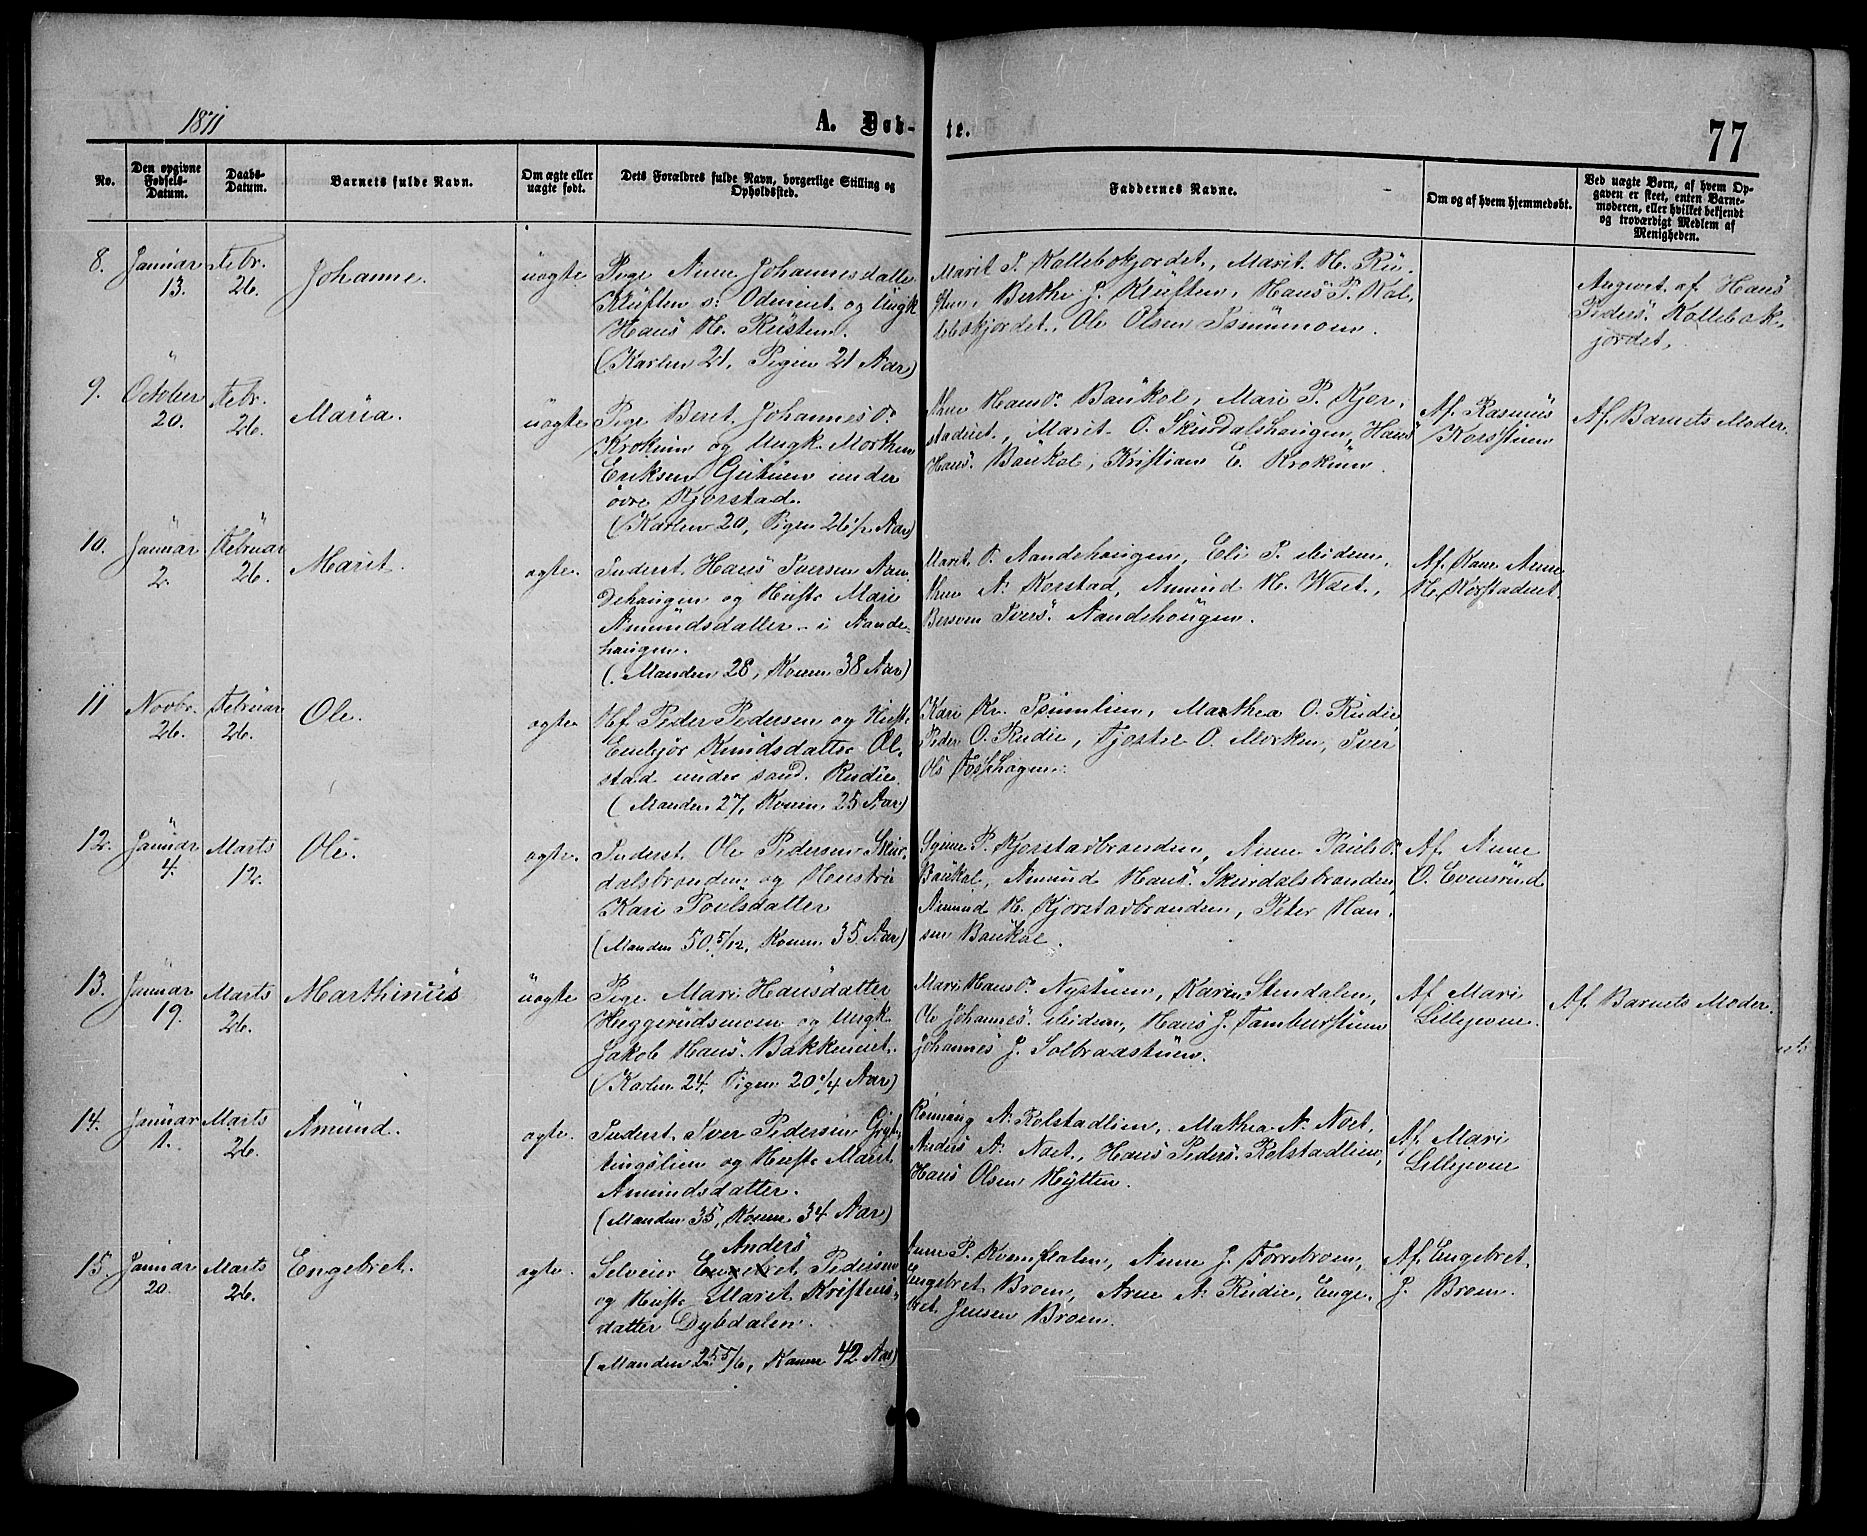 1871
A. Døb-
te.
77
No.
Den opgivne Fødsels-Datum.
Daabs-Datum.
Barnets fulde Navn.
Om ægte eller uægte født.
Dets Forældres fulde Navn, borgerlige Stilling og Opholdssted.
Faddernes Navne.
Om og af hvem hjemmedøbt.
Ved uægte Børn, af hvem Opgaven er skeet, enten Barnemoderen, eller hvilket bekjendt og troværdigt Medlem af Menigheden.
8. Januar 13. Febr. 26. Johanne. uægte
Pige Anne Johannesdatter
Kluften s: Odineiet og Ungk
Hans H. Rusten.
(Karlen 21, Pigen 21 Aar)
Marit P. Kollebokjordet, Marit H. Ru-
sten, Berthe J. Kluften, Hans P. Kol-
lebokjordet, Ole Olsen Isummoen.
Angivet af Hans
Peders. Kollebok-
jordet.
9. October 20. Febr. 26. Maria. uægte
Pige Beret Johannesdr
Krokuen og Ungk. Morthen
Eriksen Gutuen under
øvre Kjorstad.
(Karlen 20, Pigen 26 1/2 Aar)
Hansdr Baukol, Mari P. Kjor-
stadeiet, Marit O. Skurdalshaugen, Hans
Hans. Baukol, Kristian E. Krokuen.
Af Rasmus
Korsstuen
Af Barnets Moder.
10. Januar 2. Februar 26. Marit. ægte.
Inderst Hans Iversen Aan-
dehaugen og Hustr Mari
Amundsdatter i Aande-
haugen.
(Manden 28, Konen 38 Aar)
Marit O. Aandehaugen, Eli P.
A. Korstad, Amund H. Waet,
Bersven Ivers. Aandehougen.
Af Kone Anne
H. Korstadeiet.
11 Novbr. 26. Februar 26. Ole. ægte
Hf. Peder Pedersen og Hustr
Embjør Knudsdatter Ol-
stad under sønd. Rudie.
(Manden 27, Konen 25 Aar)
Kari Kr. Isumlien, Mathea O. Rudie
Peder O. Rudie, Tjostel O. Morken, Iver
Ols Fosshagen.
12. Januar 4. Marts 12. Ole. ægte.
Inderst Ole Pedersen Skur-
dalsbranden og Hustru
Kari Povlsdatter
(Manden 50 5/12, Konen 35 Aar)
Signe P. Kjorstadbranden, Anne Paulsdr
Baukol, Amund Hans. Skurdalsbranden
Amund H. Kjorstadbranden, Peter Han-
sen Baukol.
Af Anne
O. Evensrud
13. Januar 19. Marts 26. Marthinus uægte
Pige Mari Hansdatter
Heggerudsmoen og Ungk
Jakob Hans. Bakkeneiet.
(Karlen 24, Pigen 20 1/4 Aar)
Mari Hansdr Nystuen, Karen Stendalen,
Ole Johannes. Hans J. Tamburstuen
Johannes J. Solbraastuen.
Af Mari
Lillejevne.
Af Barnets Moder.
14. Januar 1. Marts 26. Amund. ægte.
Inderst Iver Pedersen Gryt-
tingslien og Hustr Marit
Amundsdatter.
(Manden 35, Konen 34 Aar)
Rønnaug A. Rolstadlien, Mathea A. Noet,
Anders A. Noet, Hans Peders. Rolstadlien,
Hans Olsen Hytten.
Af Mari
Lillejevne
15. Januar 20. Marts 26. Engebret. ægte.
Anders
Selveier Engebret Pedersen
og Hustr Marit Kristens-
datter Dybdalen.
(Manden 25 5/6, Konen 42 Aar)
Anne P. Anne J. Forrestroen,
Engebret Broen, Arne A. Rudie, Enge-
bret Jensen Broen.
Af Engebret
J. Broen.